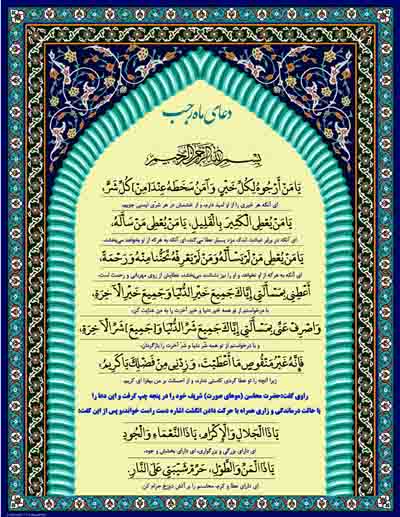 دعای ماه رجب
بسم الله الرحمن الرحیم
یَا مَنْ أَرْجُوهُ لِکُلِّ خَیْرٍ، وَآمَنُ سَخَطَهُ عِنْدَ مِنْ کُلِّ شَرٍّ،
ای آنکه هر خیری را از او امید دارم، و از خشمش در هر شری ایمنی جویم،
یَا مَنْ یُعْطِی الْکَثِیرَ بِالْقَلِیلِ، یَا مَنْ یُعْطِی مَنْ سَأَلَهُ،
ای آنکه در برابر عبادت اندک مزد بسیار عطا می‌کند، ای آنکه به هرکه از او بخواهد می‌بخشد،
یَا مَنْ یُعْطِی مَنْ لَمْ یَسْأَلْهُ وَمَنْ لَمْ یَعْرِفْهُ تَحَنُّناً مِنْهُ وَرَحْمَةً،
ای آنکه به هرکه از او نخواهد و او را نیز نشناسد می‌بخشد، عطایش از روی مهربانی و رحمت است،
أَعْطِنِی بِمَسْأَلَتِی إِیَّاکَ جَمِیعَ خَیْرِ الدُّنْیَا وَجَمِیعَ خَیْرِ الْآخِرَةِ،
با درخواستم از تو همه خیر دنیا و خیر آخرت را به من عنایت کن،
وَاصْرِفْ عَنِّی بِمَسْأَلَتِی إِیَّاکَ جَمِیعَ شَرِّ الدُّنْیَا وَ(جَمِیعَ) شَرِّ الْآخِرَةِ،
و با درخواستم از تو همه شر دنیا و شر آخرت را از من بازگردان،
فَإِنَّهُ غَیْرُ مَنْقُوصٍ مَا أَعْطَیْتَ، وَزِدْنِی مِنْ فَضْلِکَ یَا کَرِیمُ،
زیرا آنچه را تو عطا کردی کاستی ندارد، و از احسانت بر من بیفزا ای کریم.
راوی گفت:حضرت محاسن (موهای صورت) شریف خود را در پنجه چپ گرفت و این دعا را
با حالت درماندگی و زاری همراه با حرکت دادن انگشت اشاره دست راست خواندند،و پس از این گفت:
یَا ذَا الْجَلَالِ وَالْإِکْرَامِ، یَا ذَا النَّعْمَاءِ وَالْجُودِ
ای دارای بزرگی و بزرگواری، ای دارای بخشش و جود،
یَا ذَا الْمَنِّ وَالطَّوْلِ، حَرِّمْ شَیْبَتِی عَلَی النَّارِ.
ای دارای عطا و کرم، محاسنم را بر آتش دوزخ حرام کن.